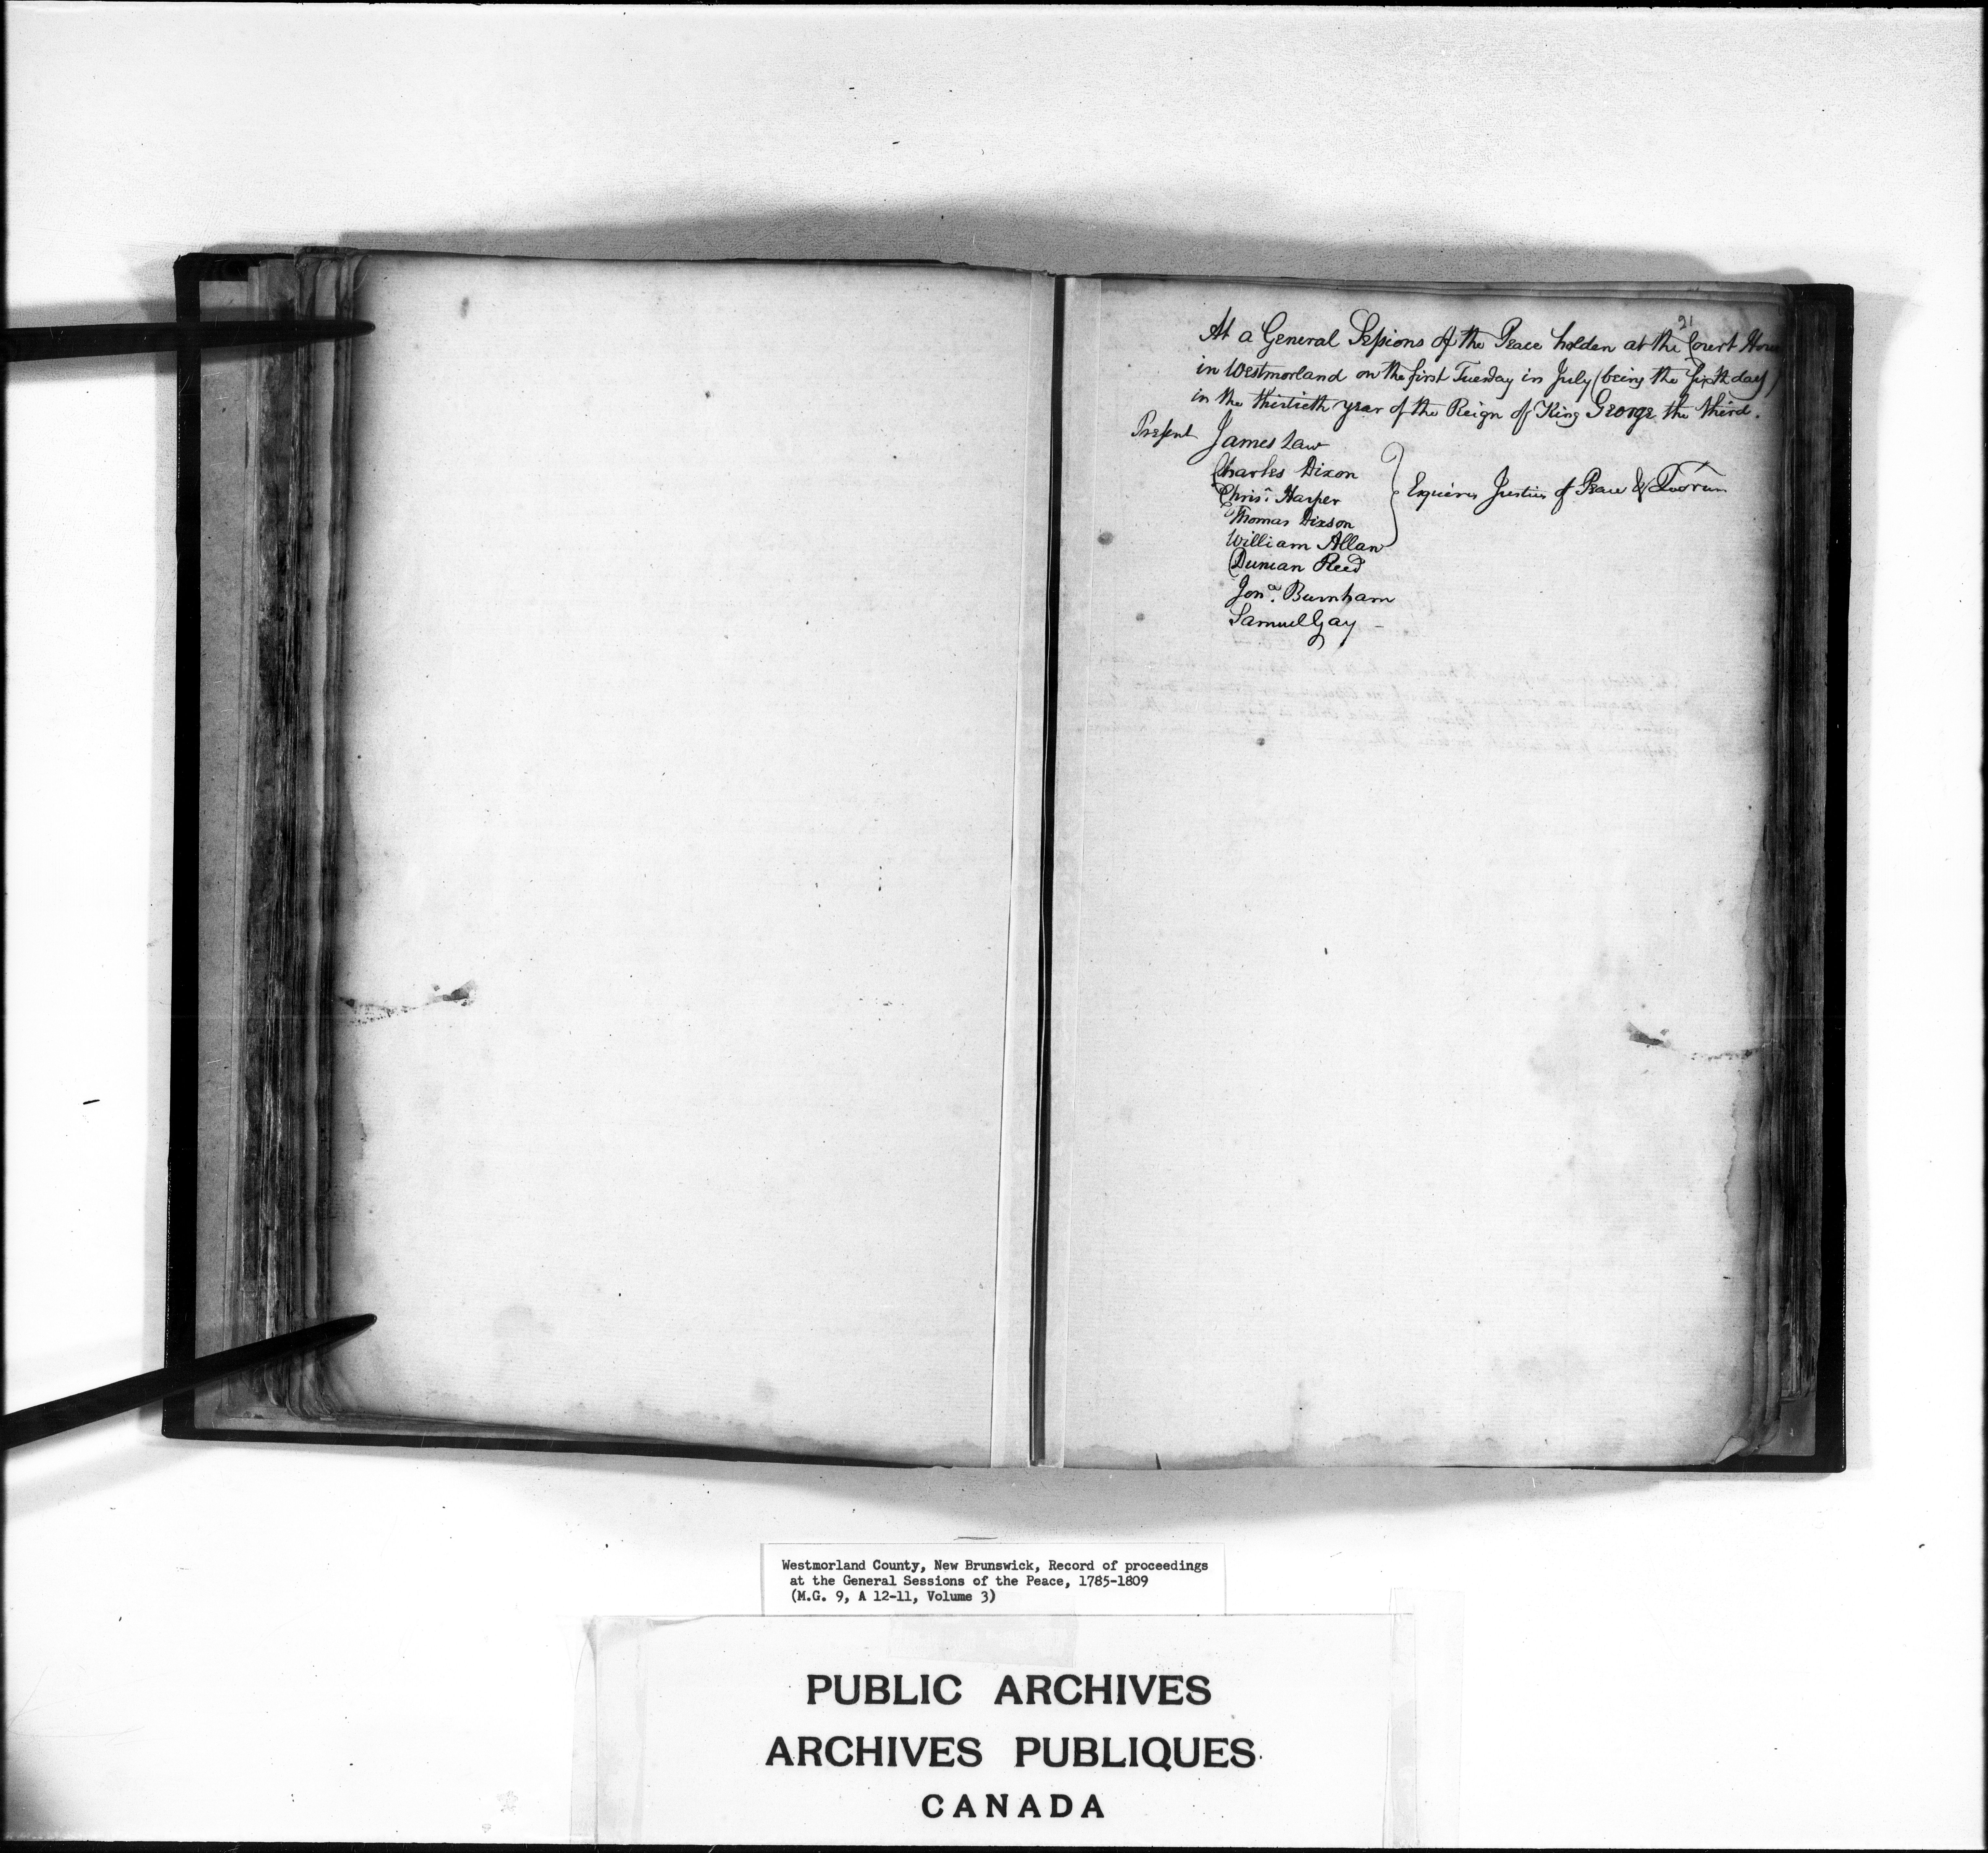 21
At a General Sessions of the Peace holden at the Court Hou
in Westmorland on the first Tuesday in July (being the Sixth day)
in the thirtieth year of the Reign of King George the third.
Present James Law
Charles Dixon
Chrisr. Harper
Thomas Dixson
William Allan
} Esquires Justices of Peace & Quorum
Duncan Reed
Jona. Burnham
Samuel Gay -
Westmorland County, New Brunswick, Record of proceedings
at the General Sessions of the Peace, 1785-1809
(M.G. 9, A 12-11, Volume 3)
PUBLIC ARCHIVES
ARCHIVES PUBLIQUES
CANADA